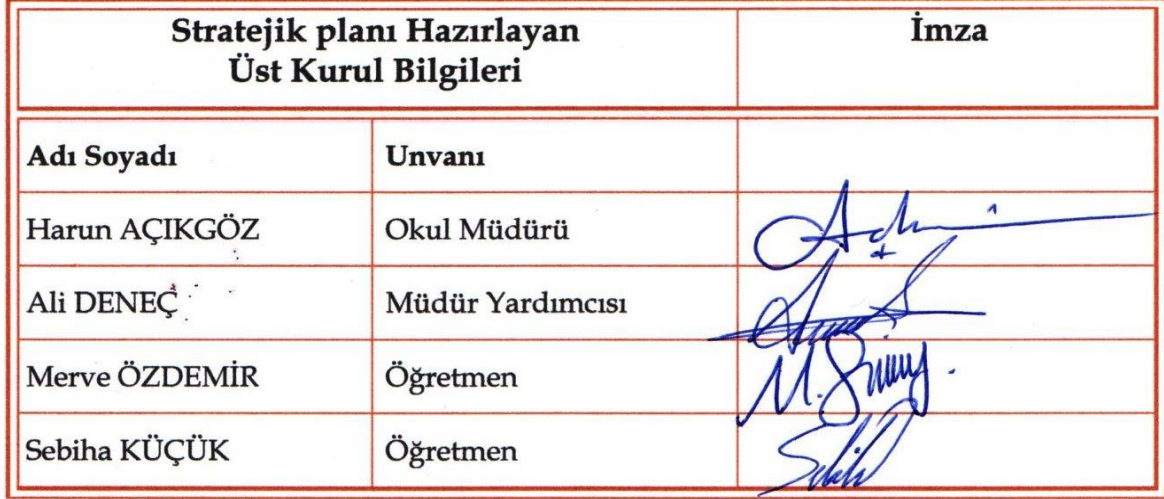 Stratejik planı Hazırlayan
Üst Kurul Bilgileri
İmza
Adı Soyadı
Unvanı
Harun AÇIKGÖZ
Okul Müdürü
Ali DENEÇ
Müdür Yardımcısı
Merve ÖZDEMİR
Öğretmen
Sebiha KÜÇÜK
Öğretmen